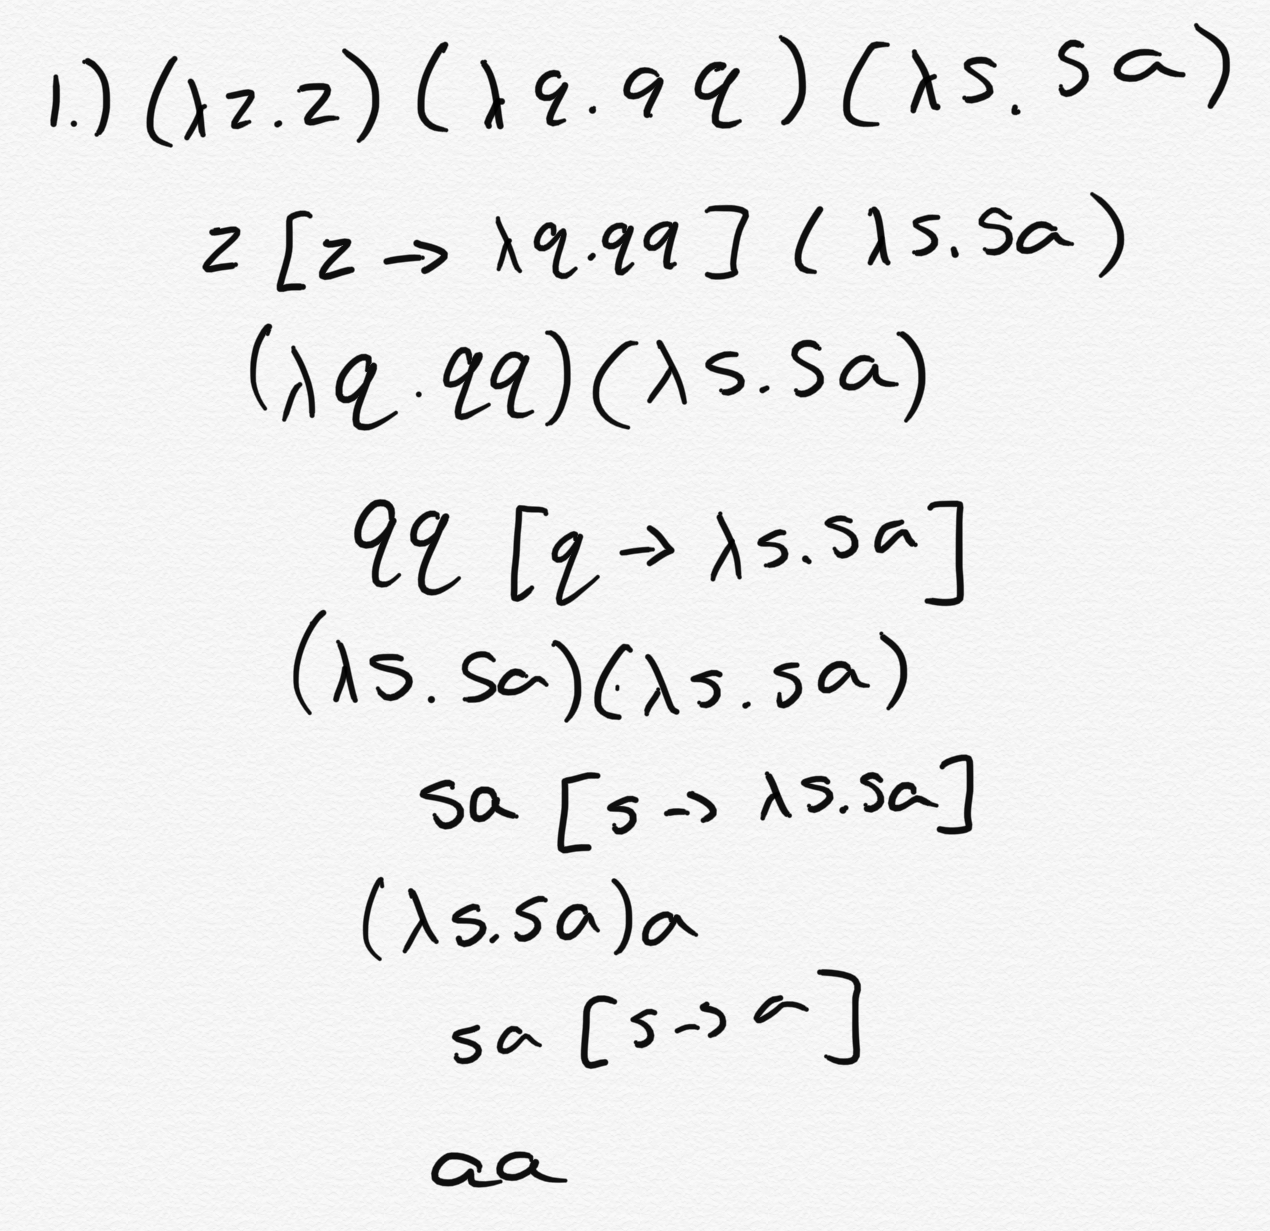 1.) (λz.z) (λq.qq) (λs.sa)
z [z → λq.qq] (λs.sa)
(λq.qq)(λs.sa)
qq [q → λs.sa]
(λs.sa)(λs.sa)
sa [s → λs.sa]
(λs.sa)a
sa [s → a]
aa